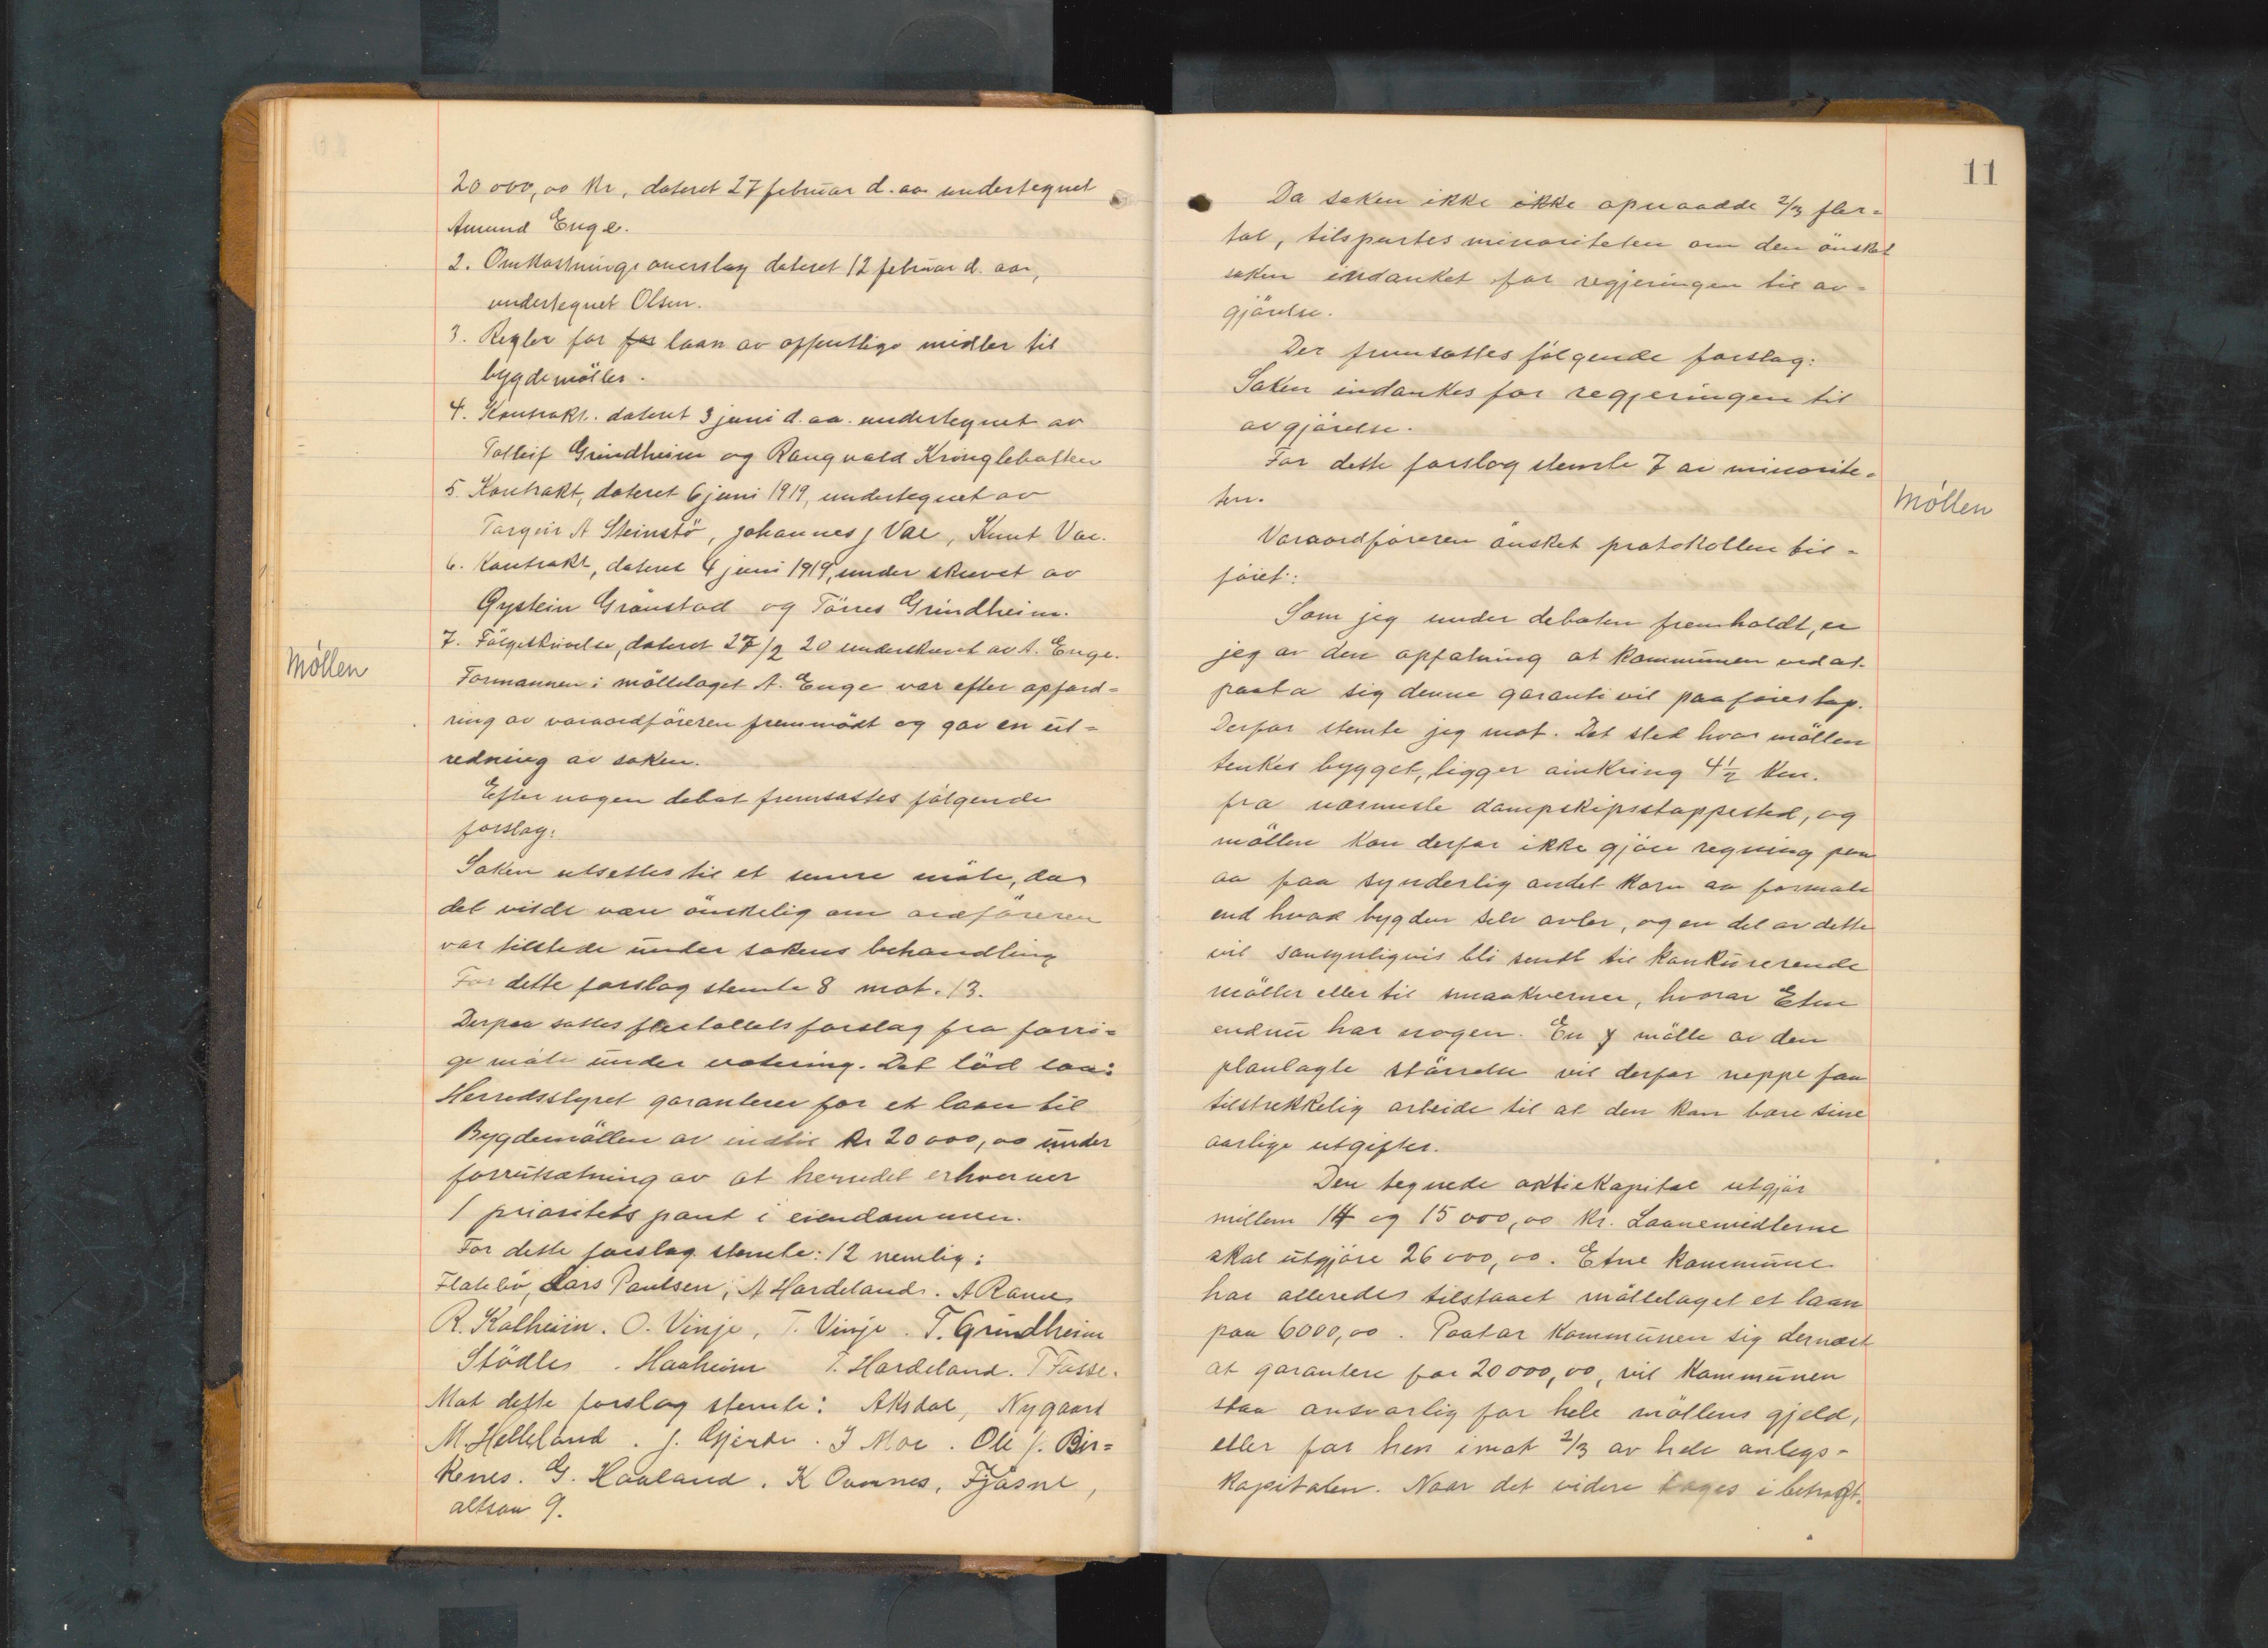 20 000,00 kr, dateret 27 februar d. aa undertegnet
Amund Enge.
2. Omkostningsoverslag dateret 12 februar d. aar,
undertegnet Olsen.
3. Regler for for laan av offentlige midler til
bygdemöller.
4. Kontrakt. dateret 3 juni d. aa. undertegnet av
Tolleif Grindheim og Rangvald Kringlebotten
5. Kontrakt, dateret 6 juni 1919, undertegnet av
Torgeir A Steinstö, Johannes J Vae, Knut Vae.
6. Kontrakt, dateret 4 juni 1919, underskrevet av
Øystein Grönstad og Törres Grindheim.
7. Fölgeskrivelse, dateret 27/2 20 underskrevet av A. Enge.
Möllen
Formannen i möllelaget A. Enge var efter opford=
ring av varaordföreren fremmödt og gav en ut=
redning av saken.
Efter nogen debat fremsattes fölgende
forslag:
Saken utsettes til et senere möte, da
det vilde være önskelig om ordföreren
var tilstede under sakens behandling
For dette forslag stemte 8 mot 13.
Derpaa sattes flertallets forslag fra forri=
ge möte under votering. Det löd saa:
Herredsstyret garanterer for et laan til
Bygdemöllen av indtil kr 20 000,00 under
forrutsætning av at herredet erhverver
1 prioritets pant i eiendommen.
For dette forslag stemte: 12 nemlig:
Flatebö, Lars Paulsen, A Hardeland. A Rame
R. Kalheim. O. Vinje, T. Vinje. T. Grindheim
Stödle. Haaheim T. Hardeland. T Fosse.
Mot dette forslag stemte: Aksdal, Nygaard
M. Helleland. J. Gjerde. I Moe. Ole J. Bir=
kenes. G. Haaland. K Ovnnes, Fjösne,
altsaa 9.
11
Da saken ikke ikke opnaadde 2/3 fler=
tal, tilspurtes minoriteten om den önsket
saken indanket for regjeringen til av=
gjörelse.
Der fremsattes fölgende forslag:
Saken indankes for regjeringen til
avgjörelse.
For dette forslag stemte 7 av minorite=
ten.
Möllen
Varaordföreren önsket protokollen til=
föiet:
Som jeg under debaten fremholdt, er
jeg av den opfatning at kommunen ved at
paata sig denne garanti vil paaföres tap.
Derfor stemte jeg mot. Det sted hvor möllen
tenkes bygget, ligger omkring 4½ km.
fra nærmeste dampskipsstoppested, og
möllen kan derfor ikke gjöre regning paa
aa faa synderlig andet korn aa formale
end hvad bygden selv avler, og en del av dette
vil sansynligvis bli sendt til konkurerende
möller eller til smaakverner, hvorav Etne
endnu har nogen. En mölle av den
planlagte störrelse vil derfor neppe faa
tilstrekkelig arbeide til at den kan bære sine
aarlige utgifter.
Den tegnede aktiekapital utgjör
millem 14 og 15 000,00 kr. Laanemidlerne
skal utgjöre 26 000,00. Etne kommune
har allerede tilstaaet möllelaget et laan
paa 6000,00. Paatar kommunen sig dernæst
at garantere for 20 000,00, vil kommunen
staa ansvarlig for hele möllens gjeld,
eller for hen imot 2/3 av hele anlegs-
kapitalen. Naar det videre tages i betragt=